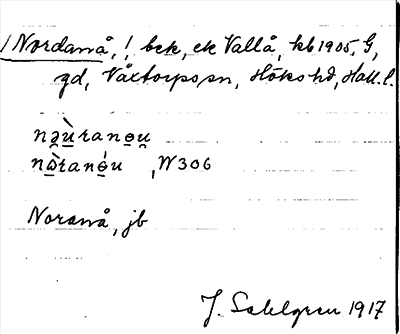 /Nordanå, / bek, ek Vallå, kb 1905, G,
gd, Våxtorps sn, Höks hd, Hall. l.
nə̯ùranəu̯
nω̂ranə́u , W306
Noranå, jb
J. Sahlgren 1917